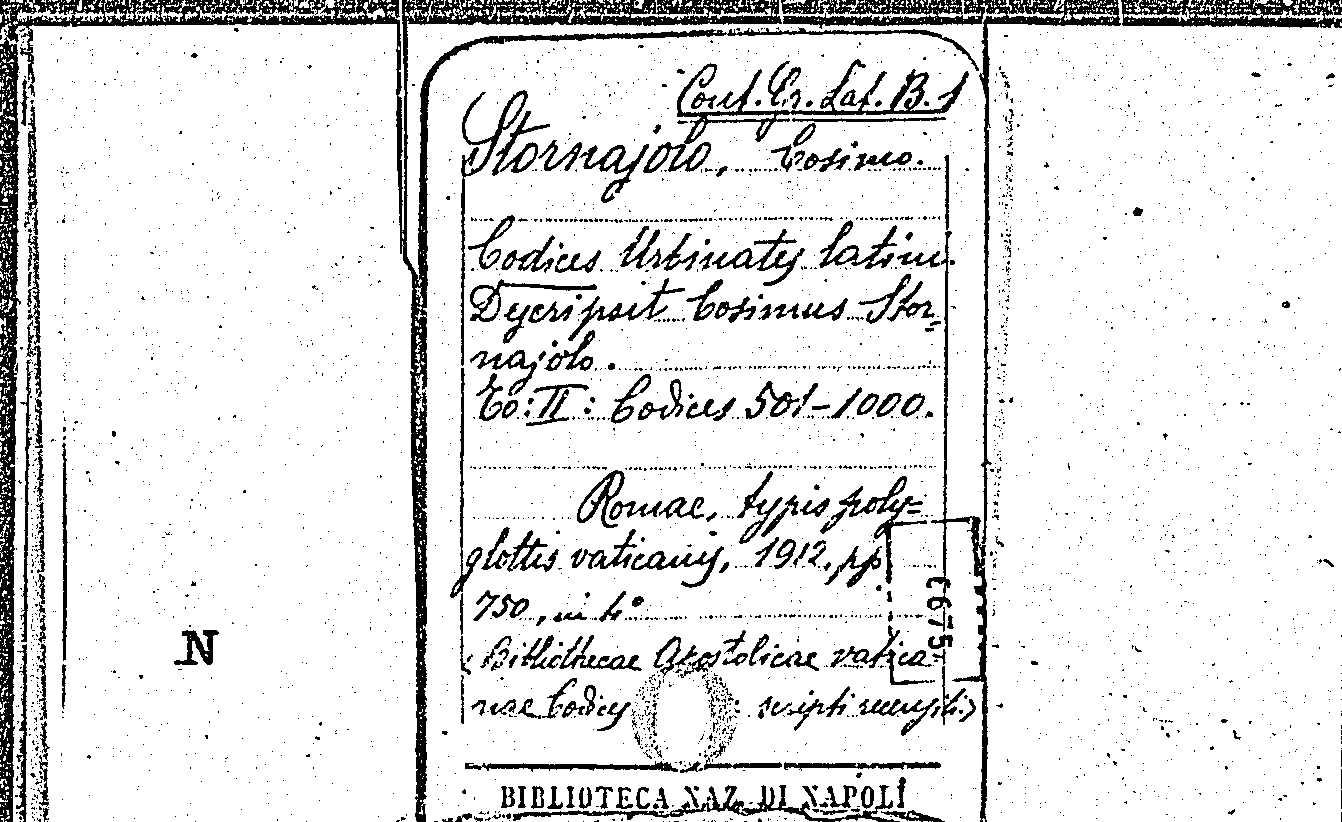 Cont. Gr. Lat. B. 1
Stornajolo, Cosimo.
Codices Urbinates latini.
Descripsit Cosimus Stor=
najolo.
To: II: Codices 501-1000.
Romae, typis poly=
glottis vaticanis, 1912, pp.
750, in 4°
(Bibliothecae Apostolicae vatica=
nae Codices scripti recensiti.)
N
BIBLIOTECA NAZ. DI NAPOLI